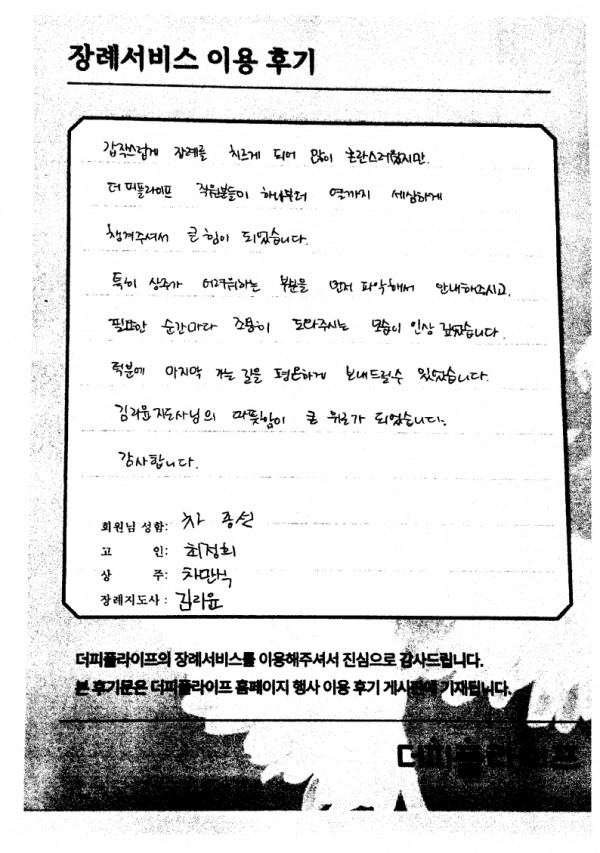 장례서비스 이용 후기
갑작스럽게 장례를 치르게 되어 많이 혼란스러웠지만.
더피플라이프 직원분들이 하나부터 열까지 세심하게
챙겨주셔서 큰 힘이 되었습니다.
특히 상주가 어려워하는 부분을 먼저 파악해서 안내해주시고,
필요한 순간마다 조용히 도와주시는 모습이 인상 깊었습니다.
덕분에 마지막 가는 길을 평온하게 보내드릴수 있었습니다.
김라윤지도사님의 따뜻함이 큰 위로가 되었습니다.
감사합니다.
회원님 성함: 차종선
고 인: 최정희
상 주: 차민석
장례지도사: 김라윤
더피플라이프의 장례서비스를 이용해주셔서 진심으로 감사드립니다.
본 후기문은 더피플라이프 홈페이지 행사 이용 후기 게시판에 기재됩니다.
더피플라이프